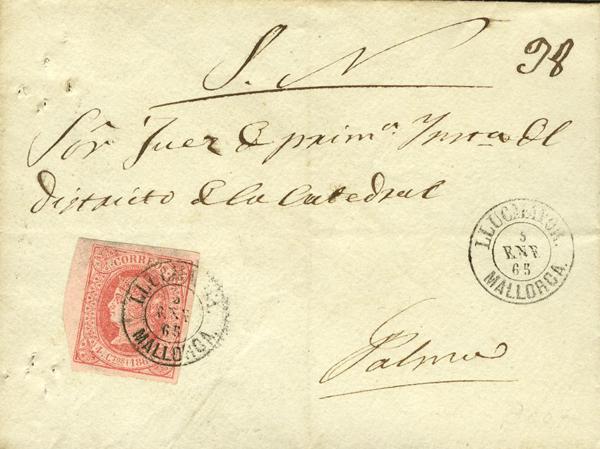 S. N
98
Sōr Juez de prim.ª Inst.ª del
distrito de la Catedral
LLUCMAYOR.
5
ENE
65
MALLORCA.
CORREOS
LLUCMAYOR.
5
ENE
65
MALLORCA.
Palma